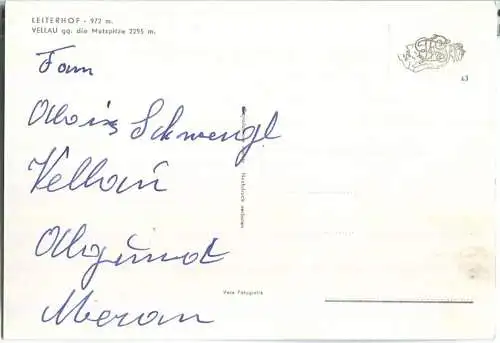 LEITERHOF - 972 m.
VELLAU gg. die Mutspitze 2295 m.
63
Fam
Alois Schwengl
Vellau
Algund
Meran
Nachdruck verboten
Vera Fotografia